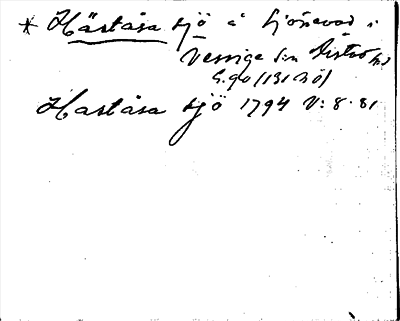 * Häståsa sjö å Sjönevad i
Vessige sn Årstad hd
S. 90 (131 nö)
Haståsa sjö 1794 V: 8. 81